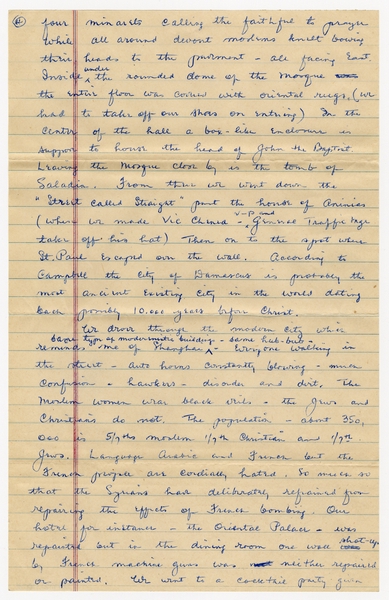 ④ four minarets calling the faithful to prayer
while all around devout moslems knelt bowing
their heads to the pavement - all facing East.
Inside under the rounded dome of the mosque
the entire floor was covered with oriental rugs. (we
had to take off our shoes on entering) In the
center of the hall a box-like enclosure is
supposed to house the head of John the Baptist.
Leaving the Mosque close by is the tomb of
Saladin. From there we went down the
"Street called Straight" past the house of Ananias
(where we made Vic Chenea V-P and General Traffic Mgr
take off his hat) Then on to the spot where
St. Paul escaped over the wall. According to
Campbell the City of Damascus is probably the
most ancient existing city in the world dating
back possibly 10.000 years before Christ.
We drove through the modern city which
same type of modernistic building - same hub-bub -
reminds me of Shanghai - Everyone walking in
the street - auto horns constantly blowing - much
confusion - hawkers - disorder and dirt. The
Moslem women wear black veils - the Jews and
Christians do not. The population - about 350,
000 is 5/7ths moslem 1/7th Christian and 1/7th
Jews. Language Arabic and French but the
French people are cordially hated. So much so
that the Syrians had deliberately refrained from
repairing the effects of French bombing. Our
hotel for instance - the Oriental Palace - was
repaired but in the dining room one wall shot-up
by French machine guns was neither repaired
or painted. We went to a cocktail party given